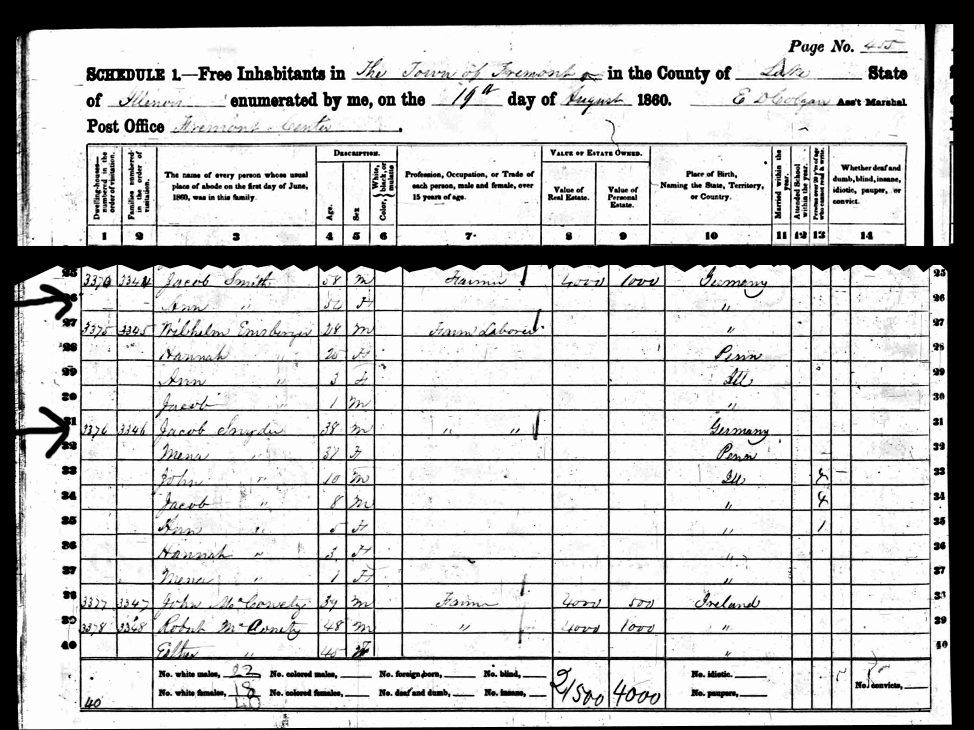 Page No. 455
SCHEDULE 1.—Free Inhabitants in The Town of Fremont in the County of Lake State
of Illinois enumerated by me, on the 19th day of August 1860. E D Colgan Ass't Marshal.
Post Office Fremont Center.
DESCRIPTION. VALUE OF ESTATE OWNED.
Dwelling-houses—numbered in the order of visitation.
Families numbered in the order of visitation.
The name of every person whose usual place of abode on the first day of June, 1860, was in this family.
Age.
Sex
Color, White, black, or mulatto
Profession, Occupation, or Trade of each person, male and female, over 15 years of age.
Value of Real Estate.
Value of Personal Estate.
Place of Birth, Naming the State, Territory, or Country.
Married within the year.
Attended School within the year.
Persons over 20 y'rs of age who cannot read & write.
Whether deaf and dumb, blind, insane, idiotic, pauper, or convict.
1 2 3 4 5 6 7 8 9 10 11 12 13 14
25 3374 3344 Jacob Smith 58 M Farmer 4000 1000 Germany 25
26 Ann " F " 26
27 3375 3345 Wilhelm Emsberger 28 M Farm Laborer " 27
28 Hannah " 20 F Penn 28
29 Ann " 3 F Ill 29
30 Jacob " 1 M " 30
31 3376 3346 Jacob Snyder 38 M " " Germany 31
32 Mena " F Penn 32
33 John " 10 M Ill 33
34 Jacob " 8 M " 34
35 Ann " 5 F " 1 35
36 Hannah " 3 F " 36
37 Mena " 1 F " 37
38 3377 3347 John 39 M Farmer 4000 500 Ireland 38
39 3378 3348 Robert 48 M " 4000 1000 " 39
40 " 45 F " 40
No. white males, 22 No. colored males, No. foreign born, No. blind, No. idiotic.
No. white females, 18 No. colored females, No. deaf and dumb, No. insane, 21500 4000 No. paupers, No. convicts,
40